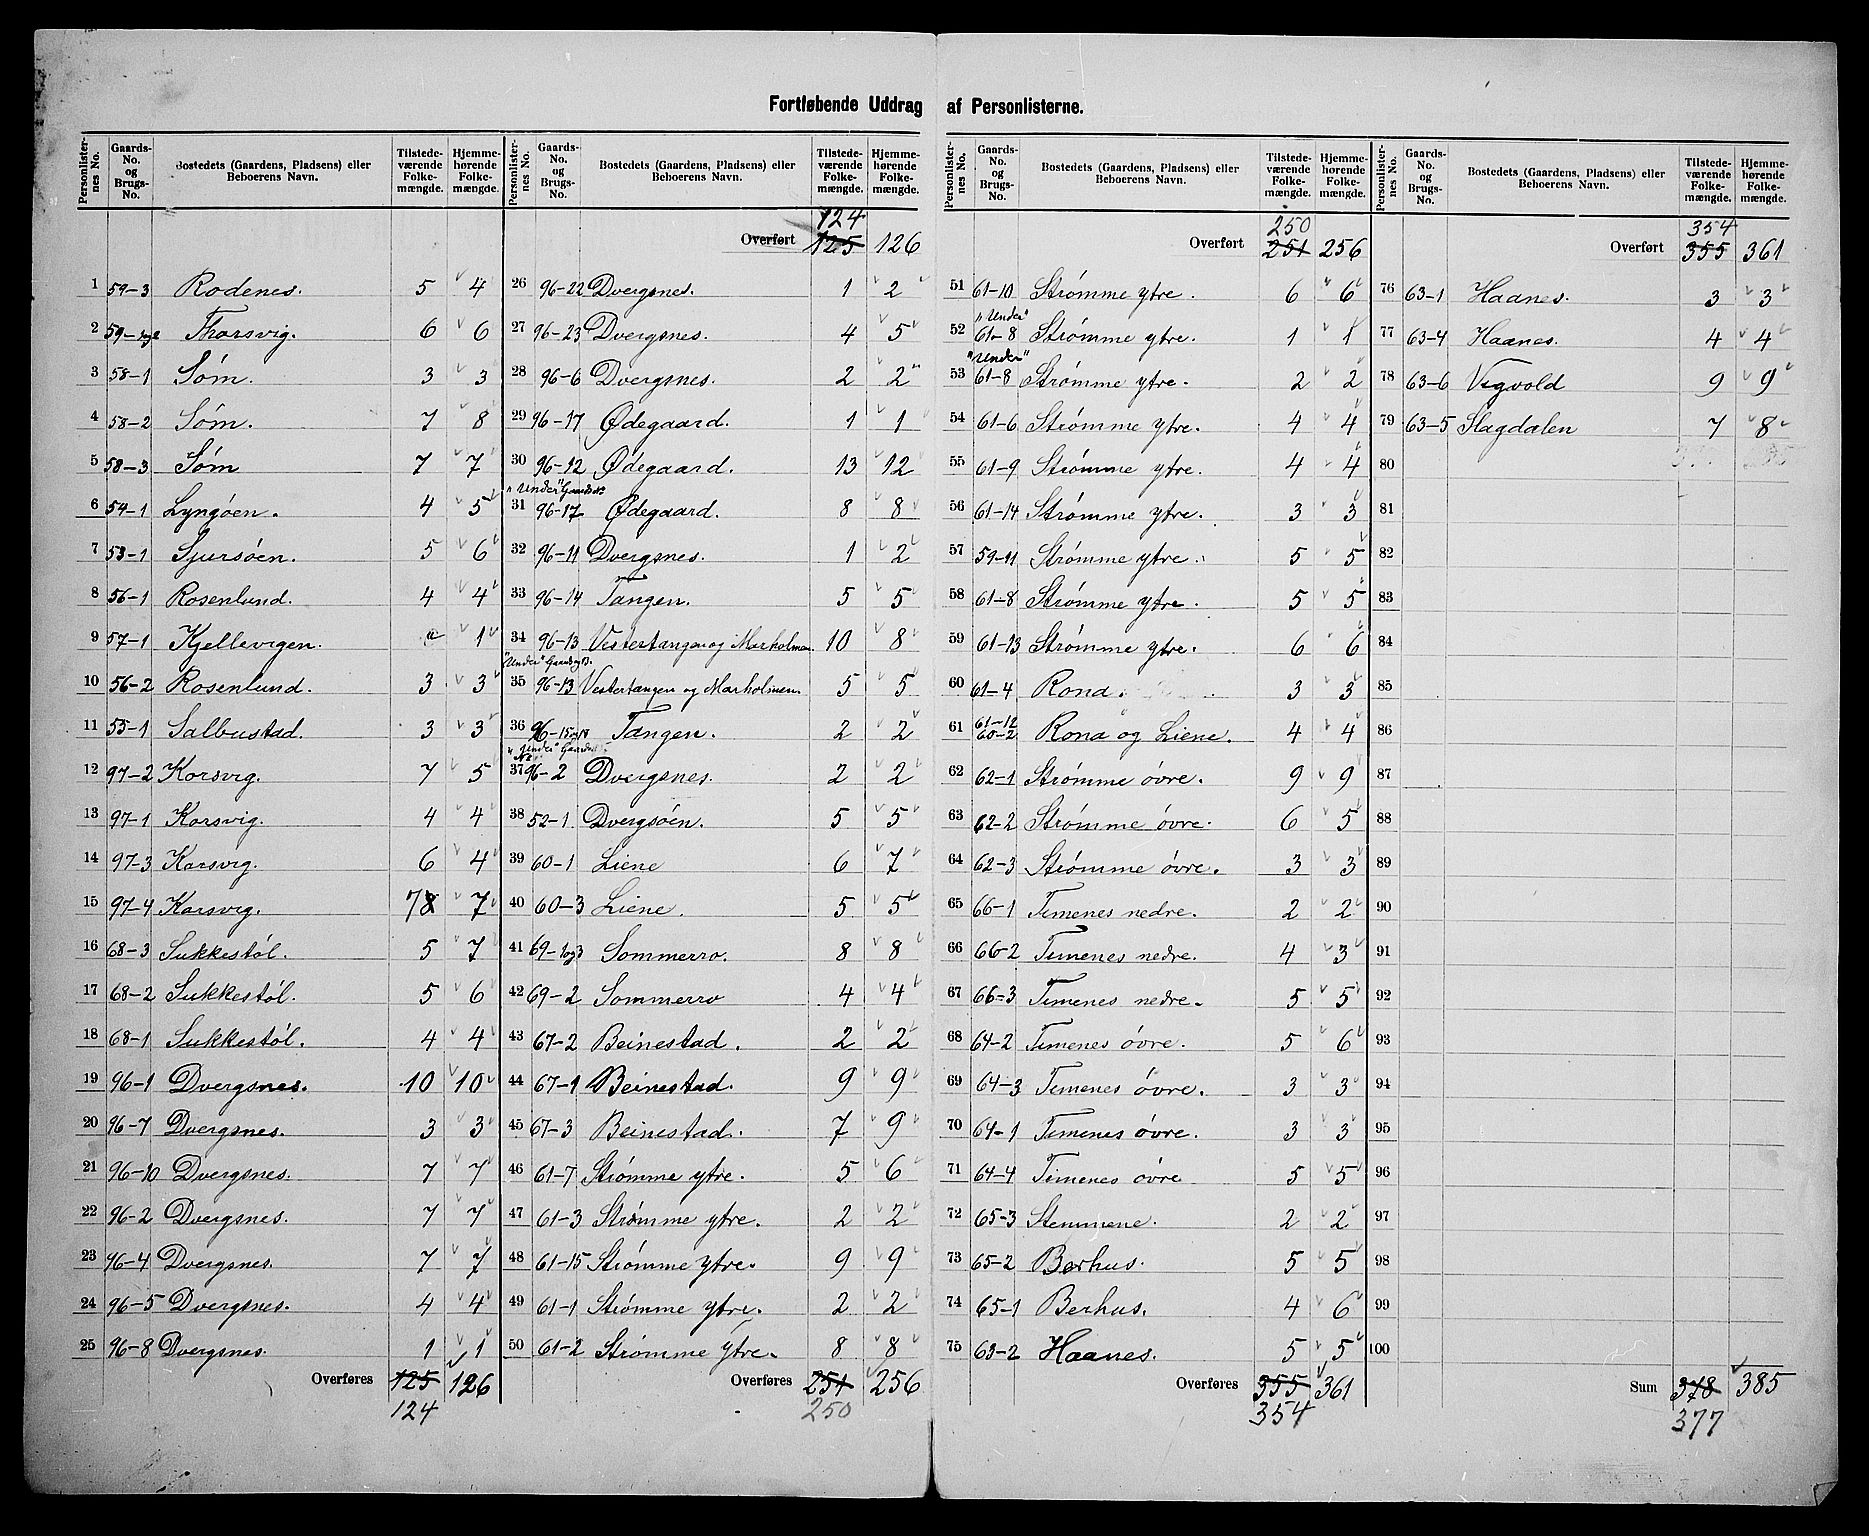 Fortløbende Uddrag af Personlisterne.
Personlister-nes No. Gaards-No. og Brugs-No. Bostedets (Gaardens, Pladsens) eller Beboerens Navn. Tilstede-værende Folke-mængde. Hjemme-hørende Folke-mængde.
1 59-3 Rodenes. 5 4
2 Thorsvig. 6 6
3 58-1 Søm. 3 3
4 58-2 Søm. 7 8
5 58-3 Søm 7 7
6 54-1 Lyngöen. 4 5
7 53-1 Gjersöen. 5 6
8 56-1 Rosenlund. 4 4
9 57-1 Kjellevigen. 1
10 56-2 Rosenlund. 3 3
11 55-1 Salbustad. 3 3
12 97-2 Korsvig. 7 5
13 97-1 Korsvig. 4 4
14 97-3 Korsvig. 6 4
15 97-4 Korsvig. 78 7
16 68-3 Sukkestöl. 5 7
17 68-2 Sukkestöl. 5 6
18 68-1 Sukkestöl. 4 4
19 96-1 Dvergsnes. 10 10
20 96-7 Dvergsnes. 3 3
21 96-10 Dvergsnes. 7 7
22 96-2 Dvergsnes. 7 7
23 96-4 Dvergsnes. 7 7
24 96-5 Dvergsnes. 4 4
25 96-8 Dvergsnes. 1 1
Overføres 125 126
124
Personlister-nes No. Gaards-No. og Brugs-No. Bostedets (Gaardens, Pladsens) eller Beboerens Navn. Tilstede-værende Folke-mængde. Hjemme-hørende Folke-mængde.
124
Overført 125 126
26 96-22 Dvergsnes. 1 2
27 96-23 Dvergsnes. 4 5
28 96-6 Dvergsnes. 2 2
29 96-17 Ødegaard. 1 1
30 96-12 Ødegaard. 13 12
"Under"
31 96-17 Ødegaard. 8 8
32 96-11 Dvergsnes. 1 2
33 96-14 Tangen. 5 5
34 96-13 Vestertangen og Marholmen. 10 8
"Under"
35 96-13 Vestertangen og Marholmen. 5 5
36 96-15og18 Tangen. 2 2
"Under"
37 96-2 Dvergsnes. 2 2
38 52-1. Dvergsöen. 5 5
39 60-1 Liene 6 7
40 60-3 Liene. 5 5
41 69-1og3 Sommerro. 8 8
42 69-2 Sommerro 4 4
43 67-2 Beinestad. 2 2
44 67-1 Beinestad. 9 9
45 67-3 Beinestad. 7 9
46 61-7 Strømme ytre. 5 6
47 61-3 Strømme ytre. 2 2
48 61-15 Strømme ytre. 9 9
49 61-1 Strømme ytre. 2 2
50 61-2 Strømme ytre. 8 8
Overføres 251 256
250
Personlister-nes No. Gaards-No. og Brugs-No. Bostedets (Gaardens, Pladsens) eller Beboerens Navn. Tilstede-værende Folke-mængde. Hjemme-hørende Folke-mængde.
250
Overført 251 256
51 61-10 Strømme ytre. 6 6
"Under"
52 61-8 Strømme ytre. 1 1
"Under"
53 61-8 Strømme ytre. 2 2
54 61-6 Strømme ytre. 4 4
55 61-9 Strømme ytre. 4 4
56 61-14 Strømme ytre. 3 3
57 59-11 Strømme ytre. 5 5
58 61-8 Strømme ytre. 5 5
59 61-13 Strømme ytre. 6 6
60 61-4 Rona. 3 3
61-12
61 60-2 Rona og Liene. 4 4
62 62-1 Strømme övre. 9 9
63 62-2 Strømme övre. 6 5
64 62-3 Strømme övre. 3 3
65 66-1 Timenes nedre. 2 2
66 66-2 Timenes nedre. 4 3
67 66-3 Timenes nedre. 5 5
68 64-2 Timenes övre. 5 6
69 64-3 Timenes övre. 3 3
70 64-1 Timenes övre. 3 3
71 64-4 Timenes övre 5 5
72 65-3 Stemmene. 2 2
73 65-2 Berhus. 5 5
74 65-1 Berhus. 4 6
75 63-2 Haanes. 5 5
Overføres 355 361
354
Personlister-nes No. Gaards-No. og Brugs-No. Bostedets (Gaardens, Pladsens) eller Beboerens Navn. Tilstede-værende Folke-mængde. Hjemme-hørende Folke-mængde.
354
Overført 355 361
76 63-1 Haanes. 3 3
77 63-4 Haanes. 4 4
78 63-6 Vigvold 9 9
79 63-5 Slagdalen 7 8
80
81
82
83
84
85
86
87
88
89
90
91
92
93
94
95
96
97
98
99
100
Sum 378 385
377